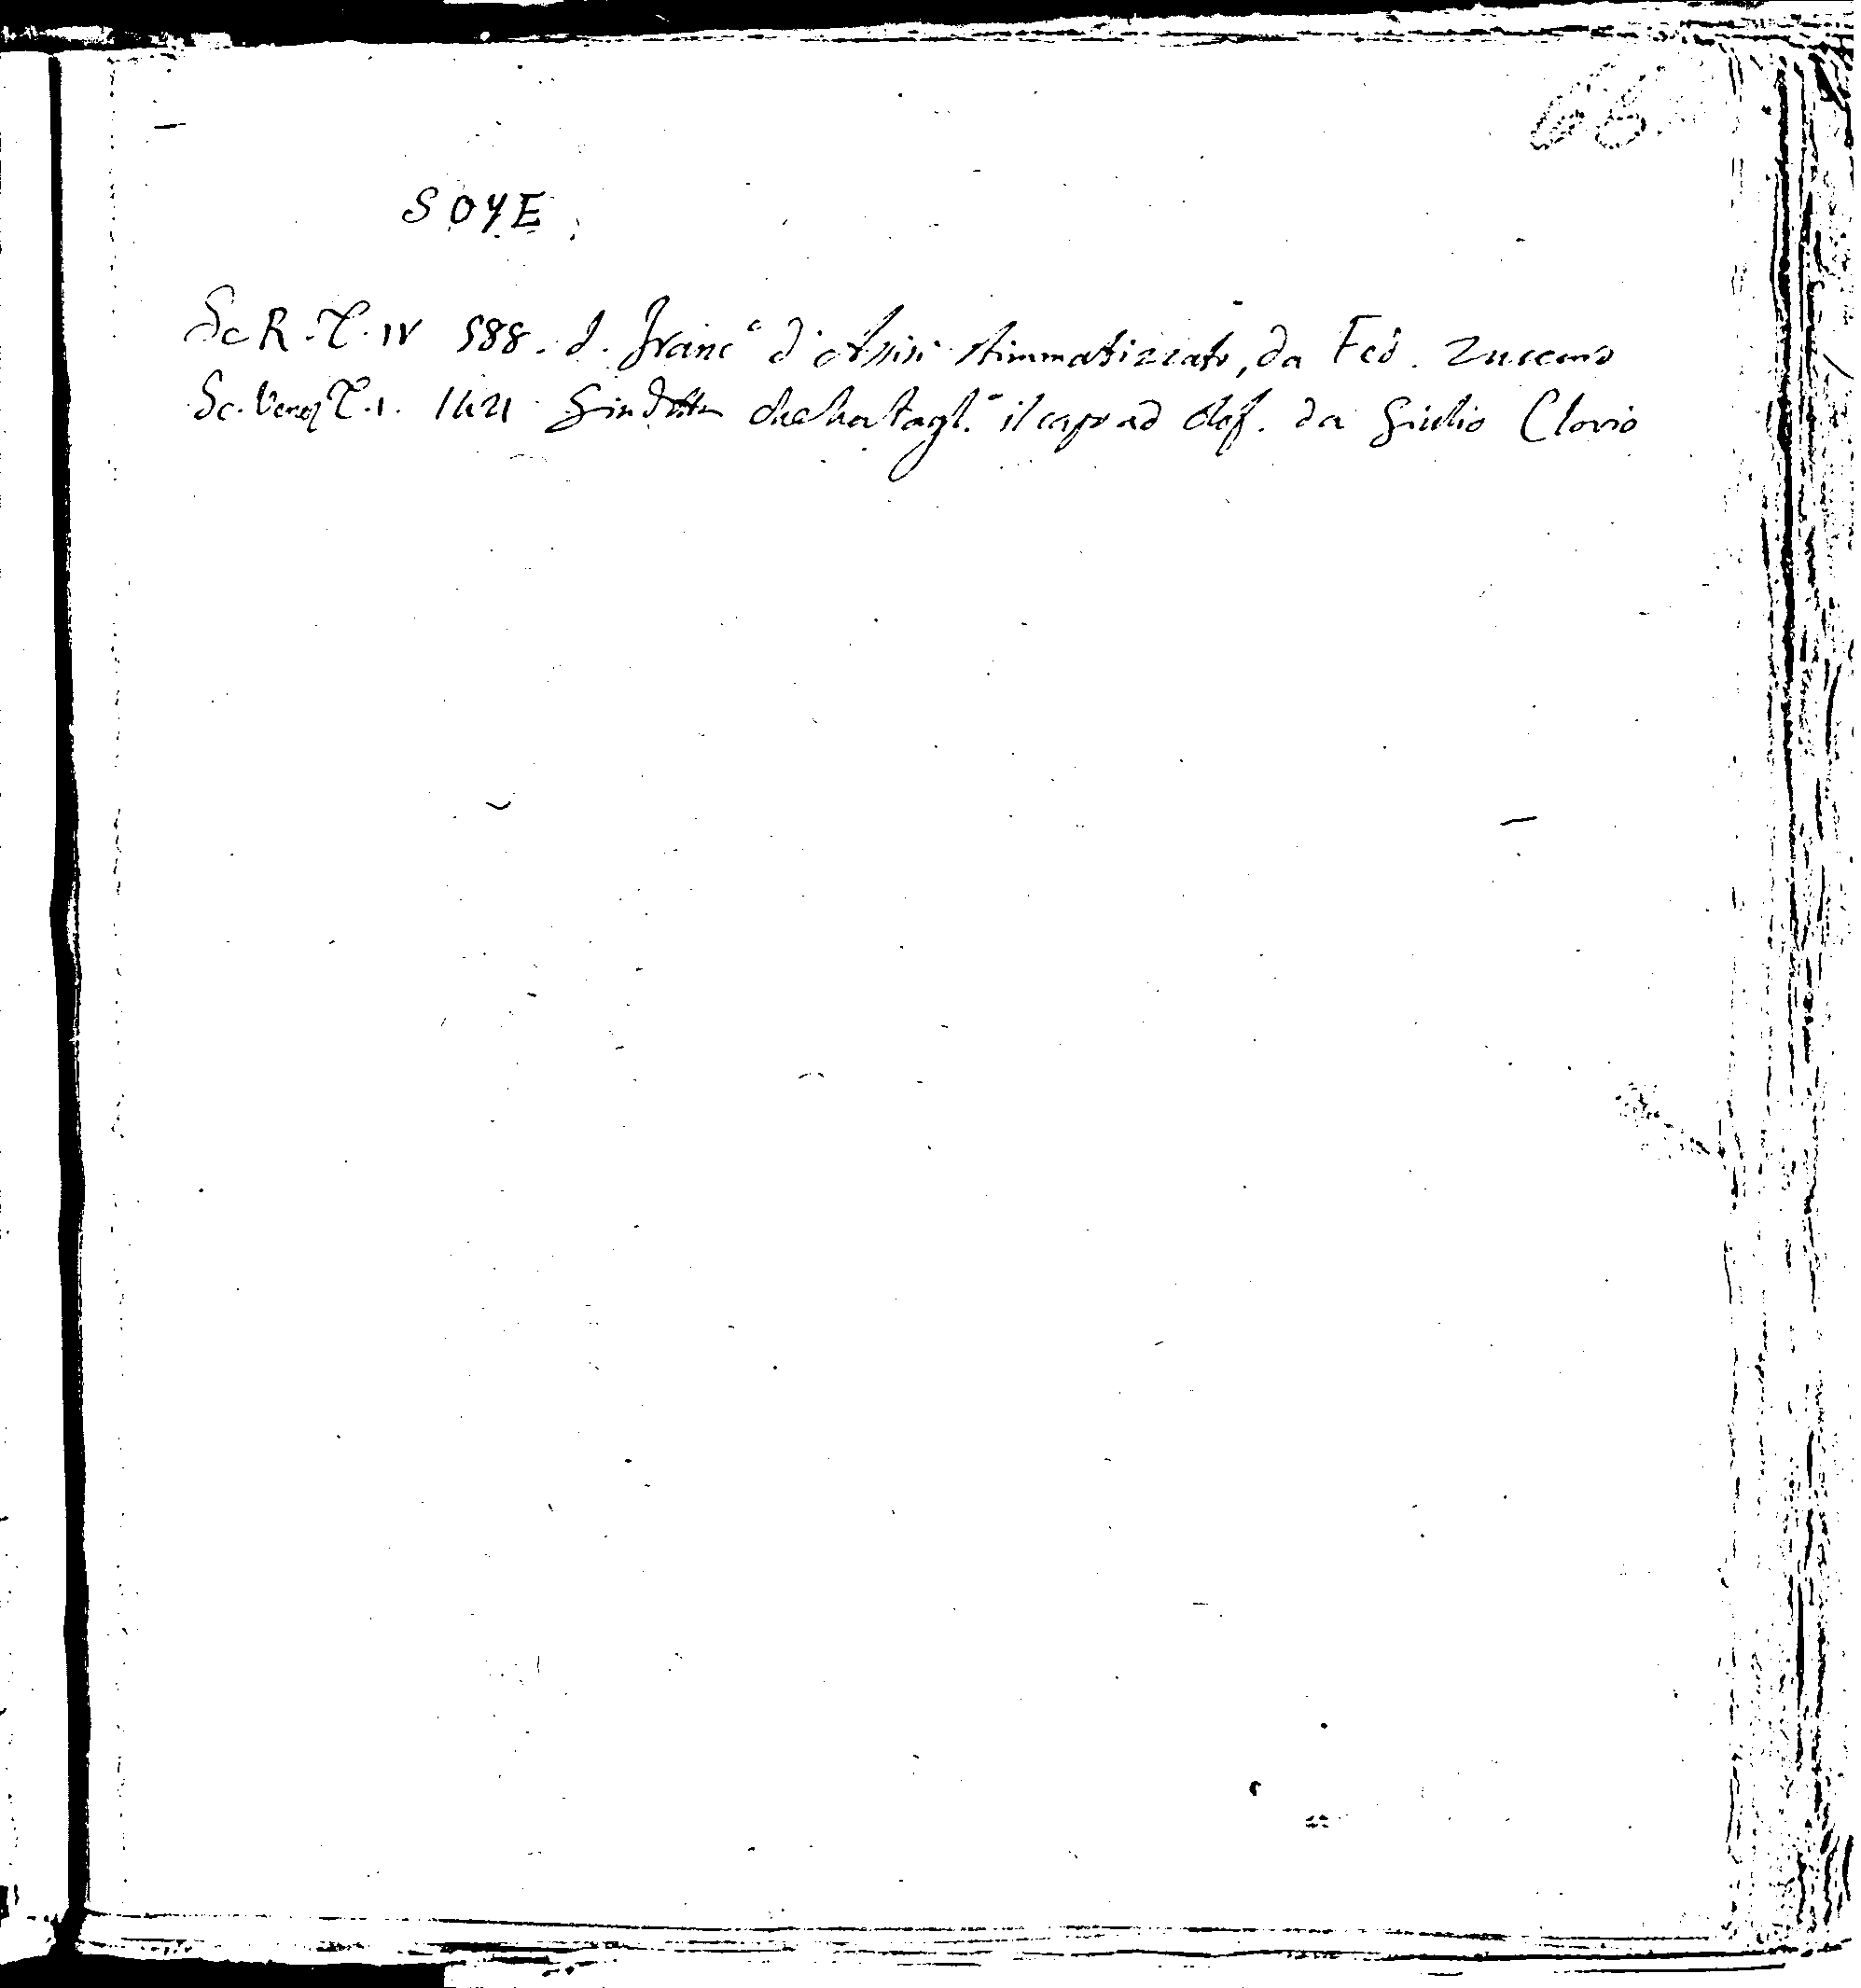 66
SOYE
Sc R. T. IV 588. S. Franc.º d'Assisi stimmatizzato, da Fed. Zuccaro
Sc. Venez T. 1. 1421 Giuditta che ha tagl.º il capo ad Olof. da Giulio Clovio